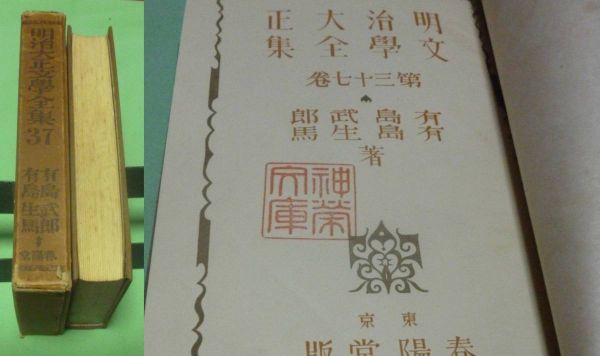 明治大正文學全集 37
有島武郎
有島生馬
春陽堂
明治大正
文學全集
第三十七卷
有島武郎
有島生馬
著
神榮
文庫
東京
春陽堂版